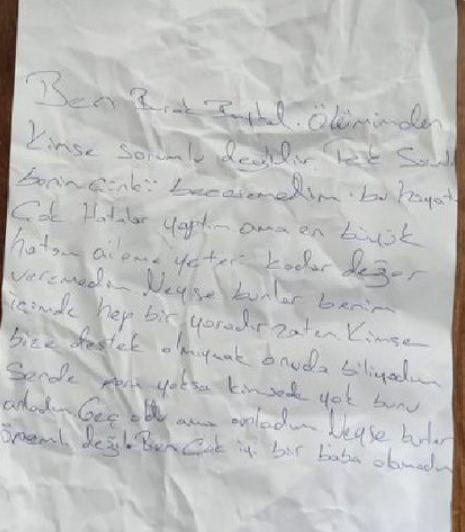 Ben Burak Baykal. Ölümümden
Kimse sorumlu değildir. Tek Sorumlu
benim çünkü beceremedim. bu hayatı
Çok Hatalar yaptım ama en büyük
hatam aileme yeteri kadar değer
veremedim Neyse bunlar benim
içimde hep bir yaradır zaten Kimse
bize destek olmıycak onuda biliyodum
Sende para yoksa kimsede yok bunu
anladım Geç oldu ama anladım Neyse bunlar
önemli değil. Ben Çok iyi bir baba olamadım